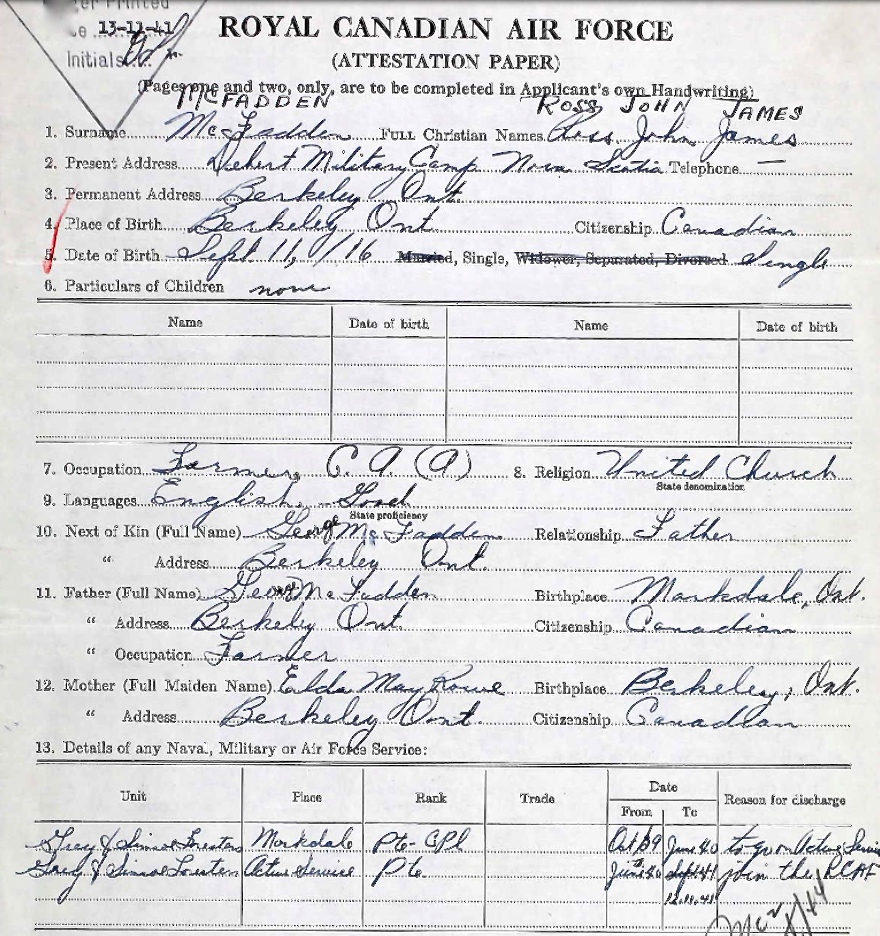 Printed
13-11-41
Initials
ROYAL CANADIAN AIR FORCE
(ATTESTATION PAPER)
(Pages one and two, only, are to be completed in Applicant's own Handwriting)
McFADDEN ROSS JOHN JAMES
1. Surname McFadden FULL Christian Names Ross John James
2. Present Address Debert Military Camp Nova Scotia Telephone —
3. Permanent Address Berkeley Ont.
4. Place of Birth Berkeley Ont Citizenship Canadian
5. Date of Birth Sept 11, /16 Married, Single, Widower, Separated, Divorced Single
6. Particulars of Children none
Name Date of birth Name Date of birth
7. Occupation Farmer, C. A. (A) 8. Religion United Church
State denomination
9. Languages English Good
State proficiency
10. Next of Kin (Full Name) George McFadden Relationship Father
" Address Berkeley Ont.
11. Father (Full Name) George McFadden Birthplace Markdale, Ont.
" Address Berkeley Ont. Citizenship Canadian
" Occupation Farmer
12. Mother (Full Maiden Name) Elda May Rowe Birthplace Berkeley, Ont.
" Address Berkeley Ont. Citizenship Canadian
13. Details of any Naval, Military or Air Force Service:
Unit Place Rank Trade Date Reason for discharge
From To
Grey & Simcoe Foresters Markdale Pte-CPL Oct 39 June 40 to go on Active Service
Grey & Simcoe Foresters Active Service Pte June 40 Sept 41 join the RCAF
12.11.41